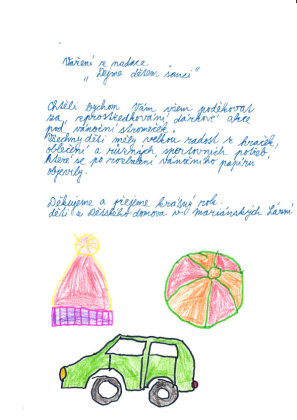 Vážení z nadace
„Dejme dětem šanci“
Chtěli bychom Vám všem poděkovat
za „zprostředkování“ dárkové akce
pod „vánoční stromeček“.
Všechny děti měly velkou radost z hraček,
oblečení a různých sportovních potřeb,
které se po rozbalení vánočního papíru
objevily.
Děkujeme a přejeme krásný rok.
děti z Dětského domova v mariánských Lázní